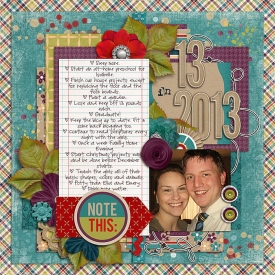 ♡ Sleep more.
♡ Start an at-home preschool for
Isabelle.
♡ Finish our house projects except
for repainting the floor and the
♡ Plant a garden.
♡ Lose and keep off 15 pounds.
♡ Graduate!
♡ Keep the blog up to date: for a
♡ Continue to read scriptures every
night with the
♡ Once a week Family Home
Evening.
♡ Start Christmas projects early
and be done before December
starts.
♡ Teach the girls all of their
shapes, colors and animals.
♡ Potty train Ella and Emery.
♡ Drink more water.
13
in
2013
NOTE
THIS: